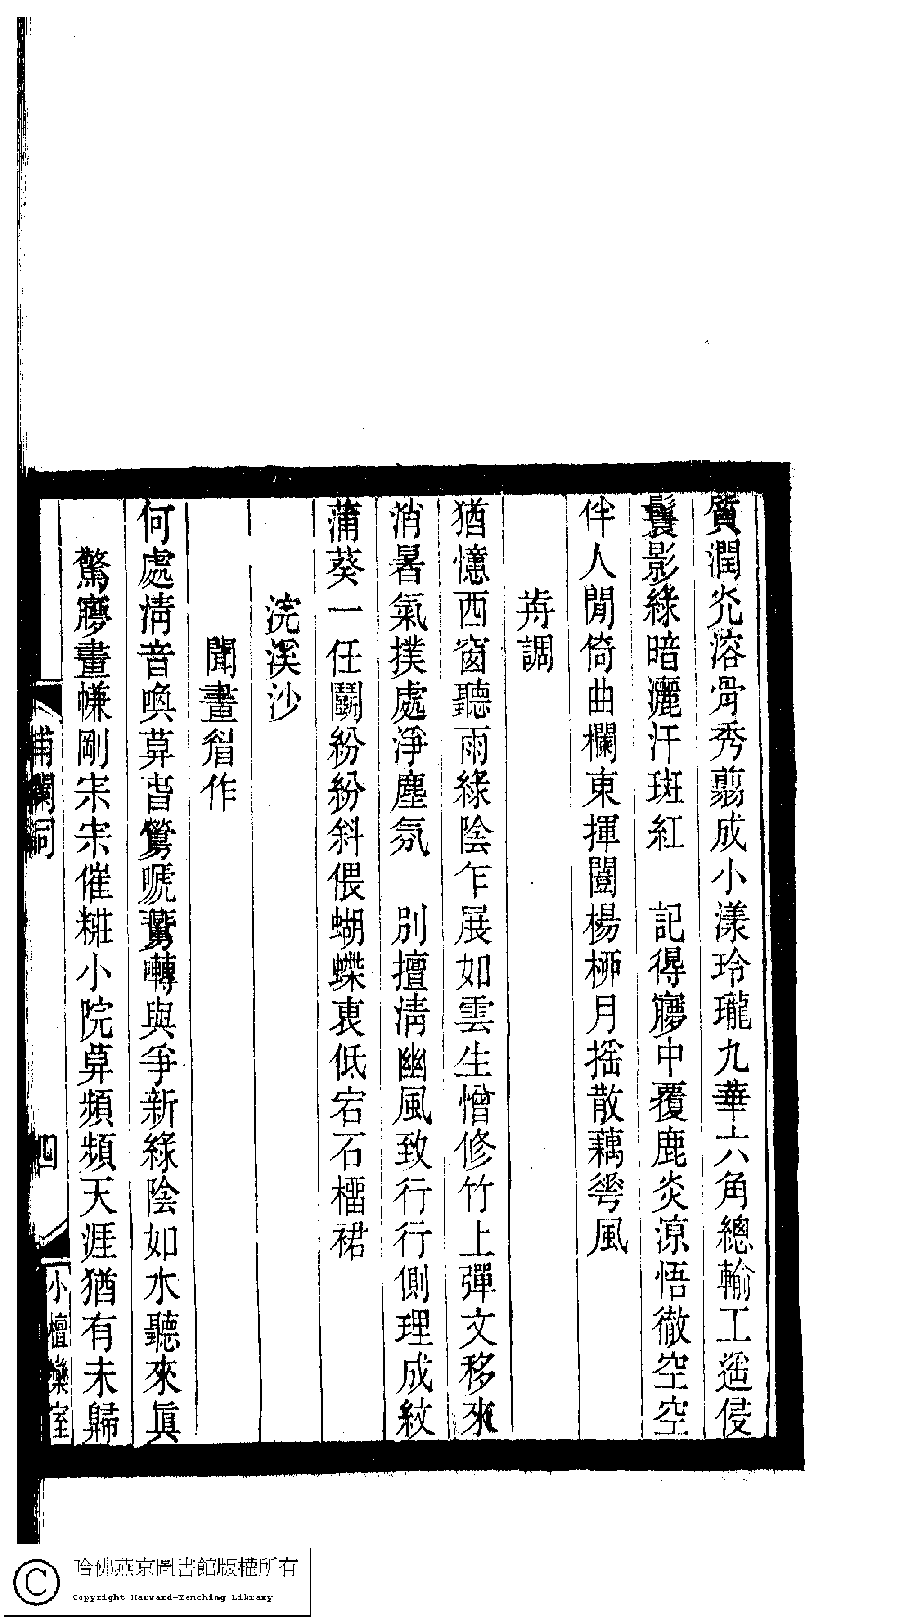 質潤光溶骨秀翦成小漾玲瓏九華六角總輸工遙侵
鬟影綠暗灑汗斑紅　記得㝱中覆鹿炎涼悟徹空空
伴人閒倚曲欄東揮闔楊柳月搖散藕雩風
歬調
猶憶西窗聽雨綠陰乍展如雲生憎修竹上彈文移來
消暑氣撲處淨塵氛　別擅淸幽風致行行側理成紋
蒲葵一任鬭紛紛斜偎蝴蝶裏低宕石橊裙
浣溪沙
聞畫睂作
何處淸音喚䒤𣅜鶯嗁鶯囀與爭新綠陰如水聽來眞
驚㝱畫㡘剛宋宋催糚小院䒤頻頻天涯猶有未歸
四
小檀欒室
哈佛燕京圖書館版權所有
Copyright Harvard-Yenching Library